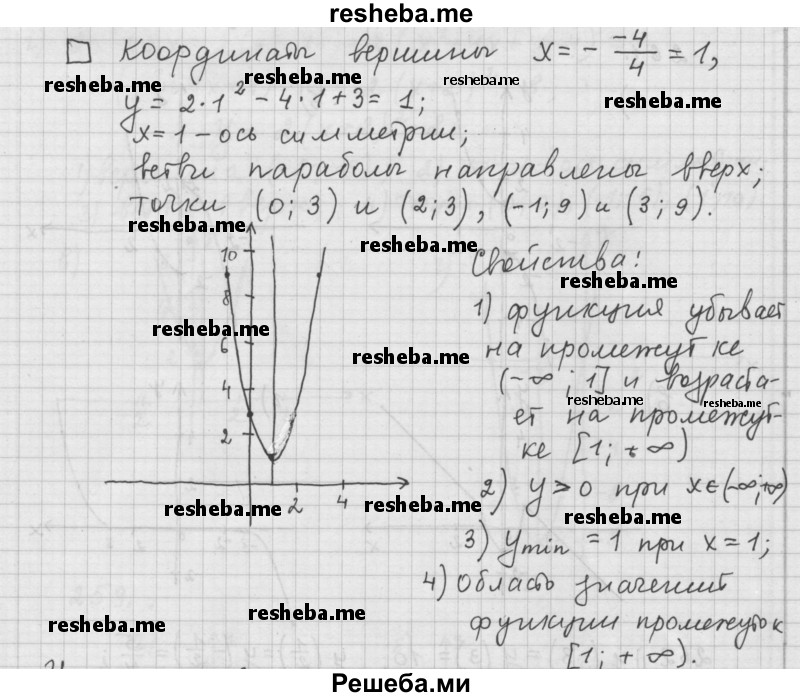 resheba.me
Координаты вершины x = - -4/4 = 1,
resheba.me resheba.me resheba.me
resheba.me
y = 2·1² - 4·1 + 3 = 1;
x = 1 - ось симметрии;
ветви параболы направлены вверх;
точки (0; 3) и (2; 3), (-1; 9) и (3; 9).
resheba.me
resheba.me
resheba.me
resheba.me
resheba.me
10
8
6
4
2
2 4
Свойства:
1) функция убывает
на промежутке
(-∞; 1] и возраста-
resheba.me resheba.me
ет на промежут-
ке [1; +∞)
2) y > 0 при x∈(-∞;+∞)
resheba.me resheba.me resheba.me
3) ymin = 1 при x = 1;
4) Область значений
функции промежуток
[1; +∞).
resheba.me resheba.me
Решеба.ми